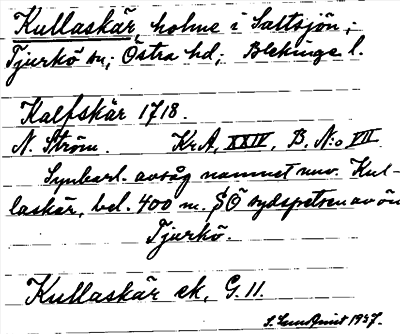 Kullaskär, holme i Saltsjön;
Tjurkö sn; Östra hd; Blekinge l.
Kalfskär 1718.
N. Ström. KrA, XXIV, B. N:o VII
Synbarl. avsåg namnet nuv. Kul-
laskär, bel. 400 m. SÖ sydspetsen av ön
Tjurkö.
Kullaskär ek, G. 11.
S. Lundquist 1937.